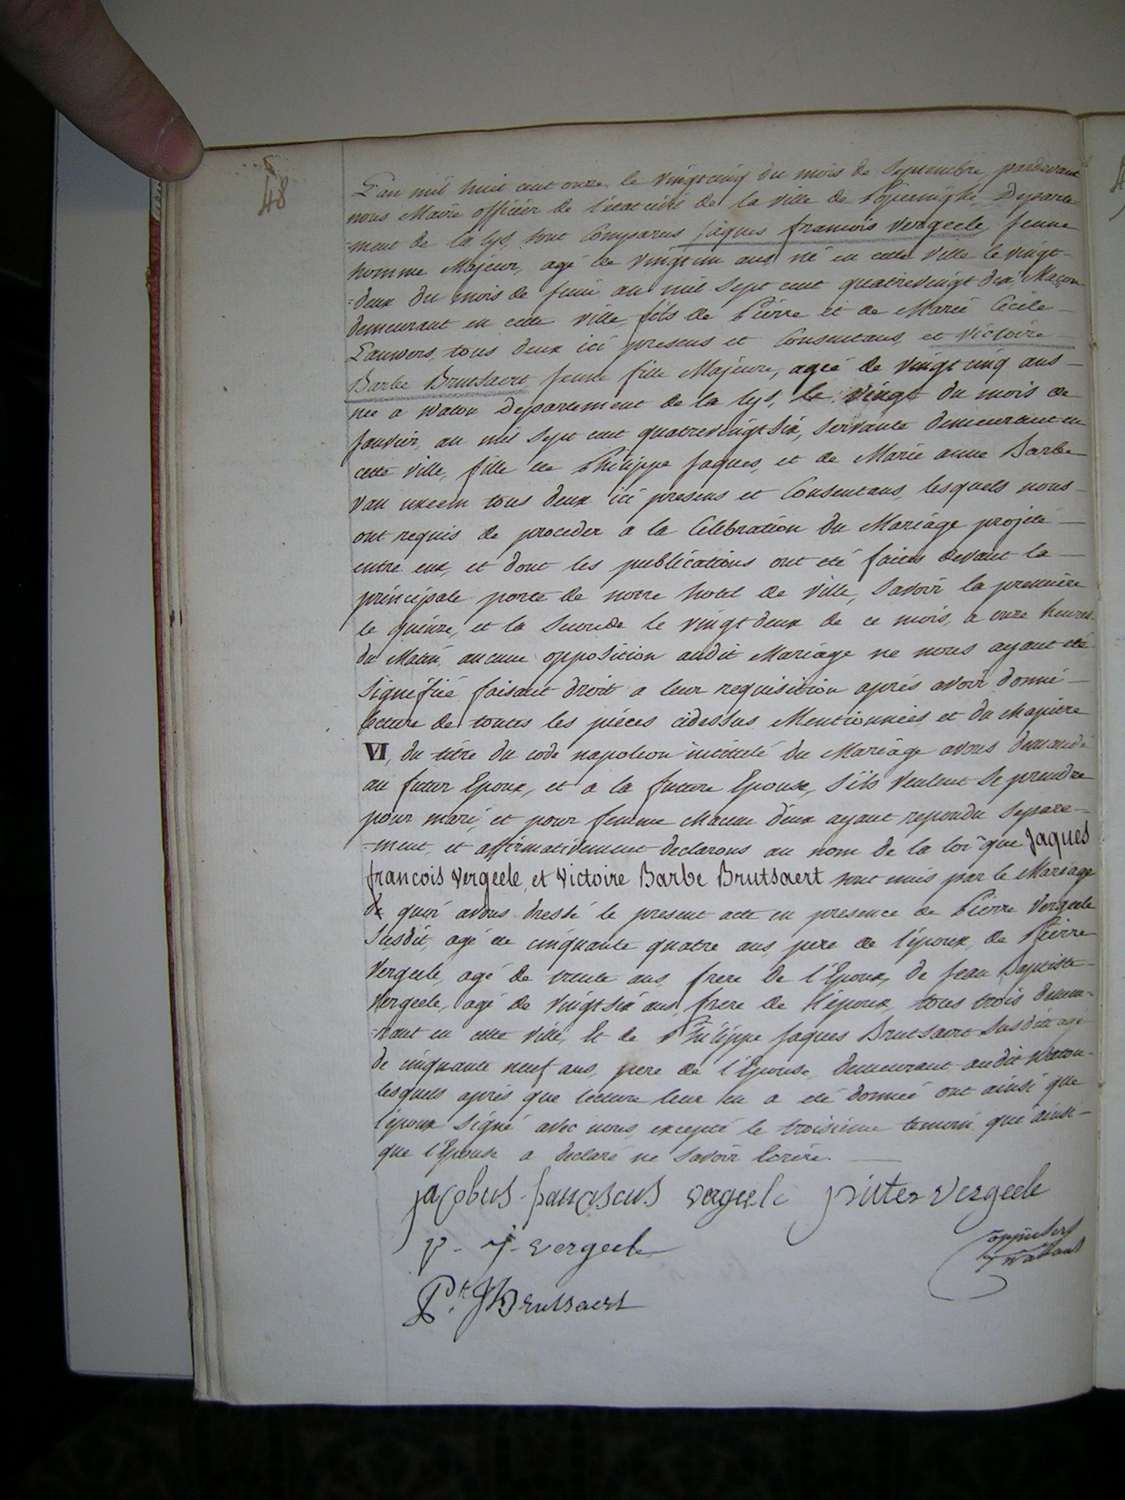 48
L'an mil huit cent onze le vingtcinq du mois de Septembre, pardevant
nous Maire officier de l'etat civil de la ville de Poperinghe Departe-
-ment de la Lys, sont Comparus jaques francois vergeele, jeune
homme Majeur, agé de vingtun ans, né en cette ville le vingt-
-deux du mois de juin an mil sept cent quatrevingt dix, Maçon
demeurant en cette ville, fils de Pierre et de Marie Cecile
Lauwers, tous deux ici presens et Consentans, et victoire
Barbe Brutsaert, jeune fille Majeure, agée de vingt cinq ans
née a watou Departement de la Lys, le vingt du mois de
janvier, an mil sept cent quatrevingt six, servante demeurant en
cette ville, fille de Philippe jaques, et de Marie anne Barbe
van uxeem tous deux ici presens et Consentans, lesquels nous
ont requis de proceder a la Celebration du Mariage projeté
entre eux, et dont les publications ont été faites devant la
principale porte de notre hotel de ville, Savoir la premiere
le quinze, et la Seconde le vingtdeux de ce mois, a onze heures
du Matin, aucune opposition audit Mariage ne nous ayant eté
Signifiée faisant droit a leur requisition aprés avoir donné
lecture de toutes les piéces cidessus Mentionnées et du Chapitre
VI, du titre du code napoleon intitulé du Mariage avons demandé
au futur Epoux, et a la future Epouse, S'ils veulent Se prendre
pour mari, et pour femme chacun d'eux ayant repondu Separé-
-ment, et affirmativement declarons au nom de la loi que Jaques
francois vergeele, et Victoire Barbe Brutsaert sont unis par le Mariage
de quoi avons dressé le present acte en presence de Pierre Vergeele
Susdit, agé de cinquante quatre ans, pere de l'époux, de Pierre
Vergeele, agé de trente ans, frere de l'Epoux, de jean Baptiste
Vergeele, agé de vingtsix ans, frere de l'époux, tous trois demeu-
-rant en cette ville, Et de Philippe Jaques Brutsaert Susdit agé
de cinquante neuf ans, pere de l'Epouse, demeurant audit Watou
lesquels aprés que lecture leur en a été donnée ont ainsi que
l'époux Signé avec nous, excepté le troisieme temoin que ainsi
que l'Epouse a declaré ne Savoir Ecrire.
jacobus franciscus vergeele pieter vergeele
P. J. vergeele
P.r J Brutsaert